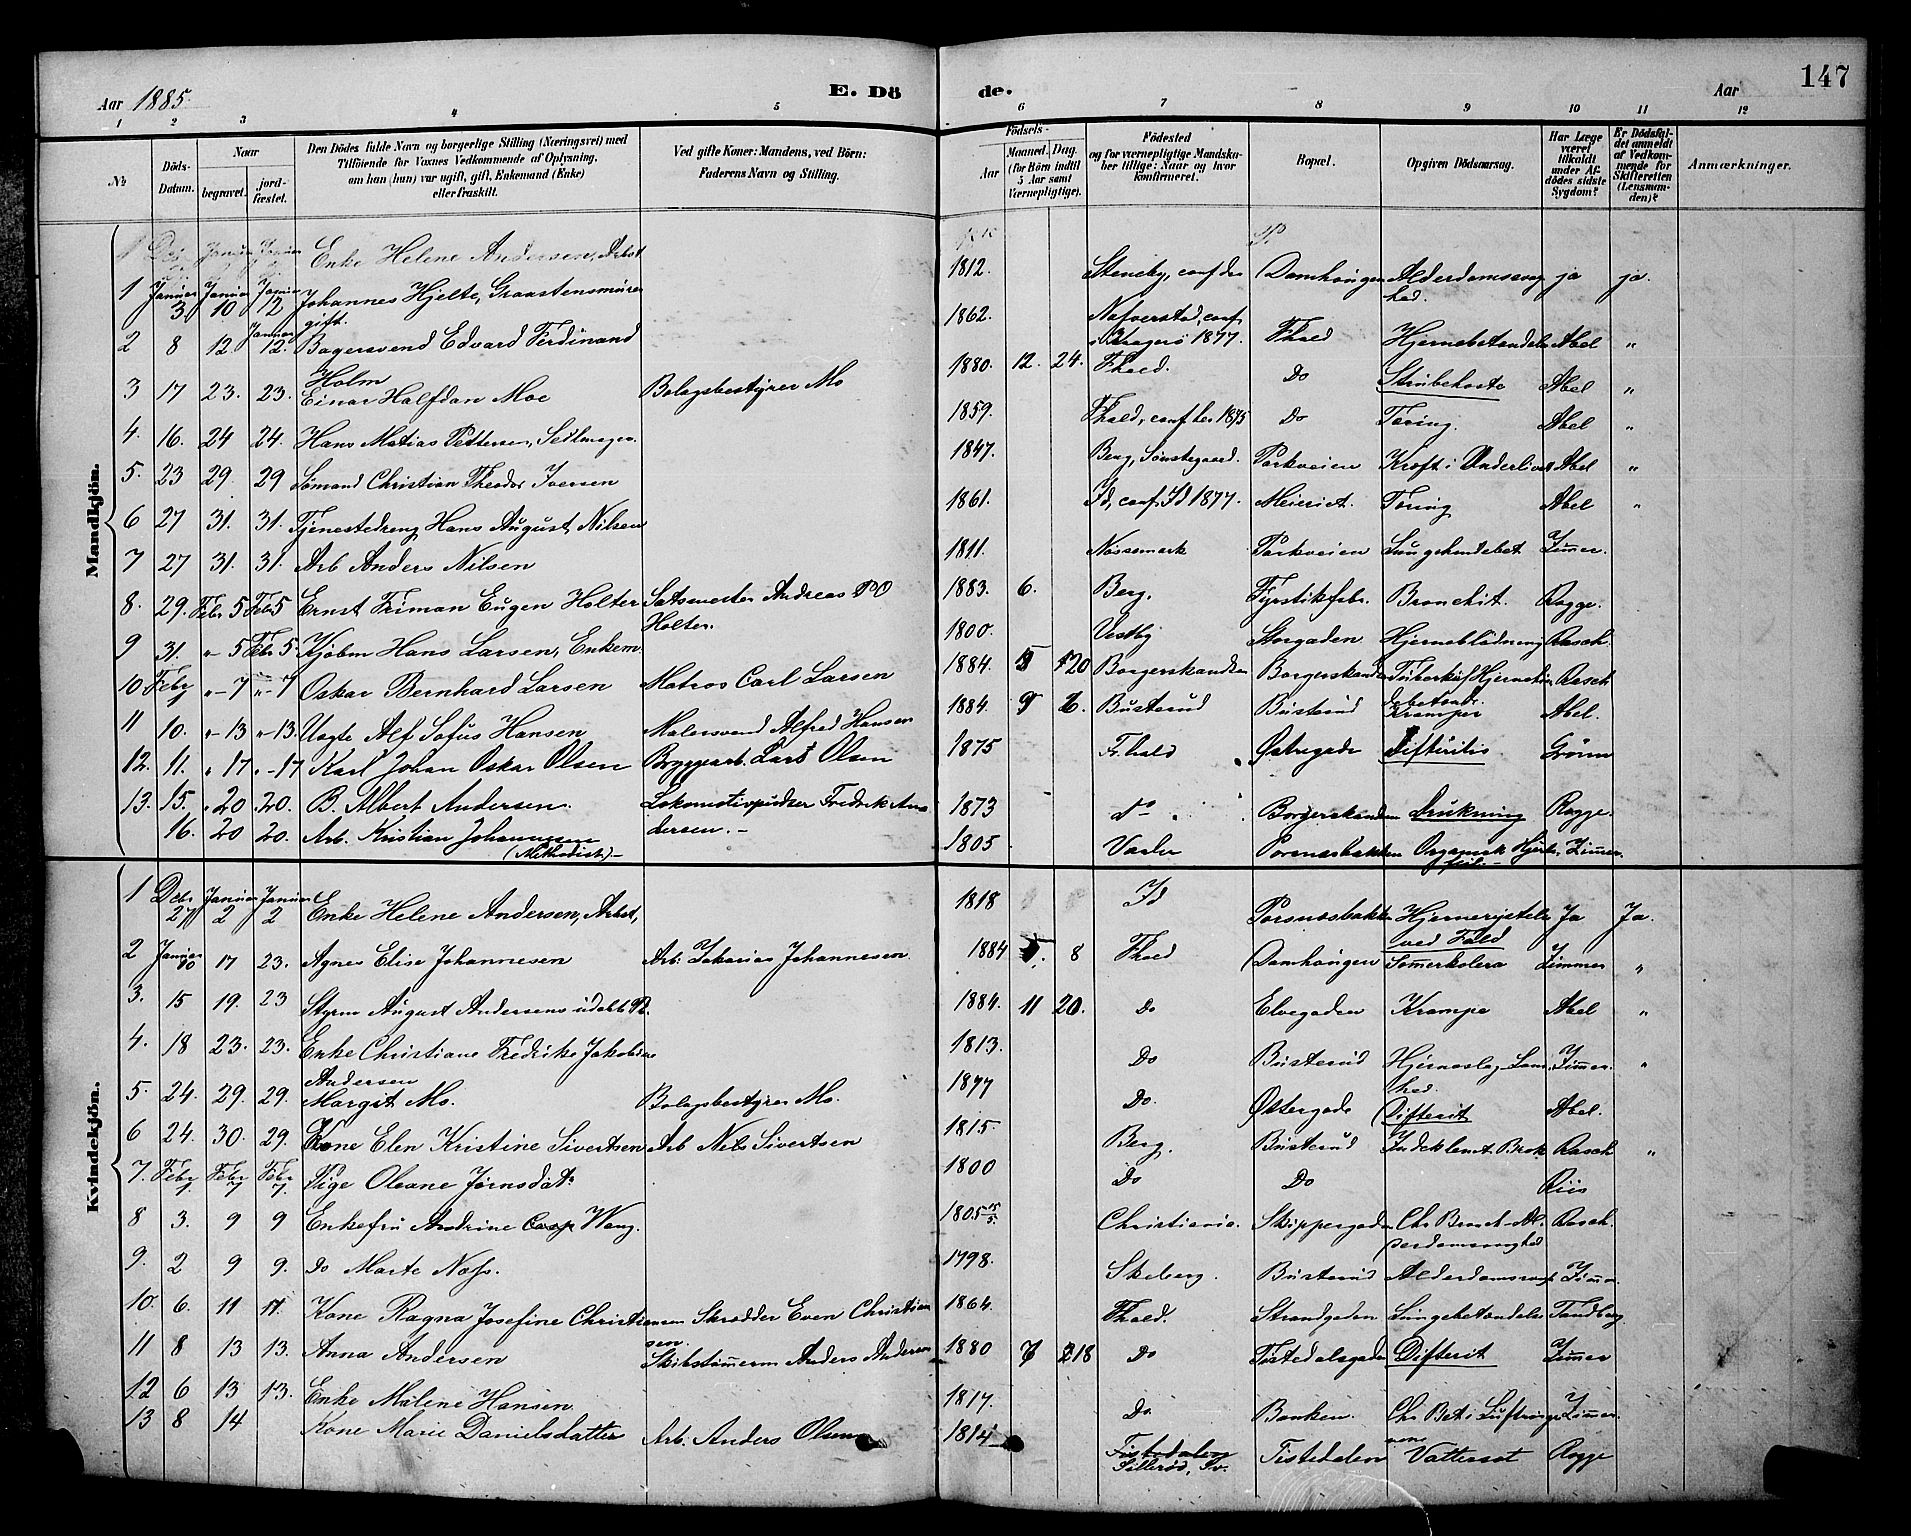 Aar 1885. E. Dö de. Aar 147
1 2 3 4 5 6 7 8 9 10 11 12
No Döds-Datum. Naar begravet. jord-fæstet. Den Dödes fulde Navn og borgerlige Stilling (Næringsvei) med Tilföiende for Voxnes Vedkommende af Oplysning, om han (hun) var ugift, gift, Enkemand (Enke) eller fraskilt. Ved gifte Koner: Mandens, ved Börn: Faderens Navn og Stilling. Födsels- Aar Maaned. Dag. (for Börn indtil 5 Aar samt Værnepligtige). Födested og for værnepligtige Mandskaber tillige: Naar og hvor konfirmeret. Bopæl. Opgiven Dödsaarsag. Har Læge været tilkaldt under Afdödes sidste Sygdom? Er Dödsfaldet anmeldt af Vedkommende for Skifteretten (Lensmanden)? Anmærkninger.
Mandkjön.
Enke Helene Andersen, Arbst
1 Januar 3 Januar 10 Januar 12 Johannes Hjelte, Graastensmürer gift. 1812. Steneby, conf der Damhaugen Alderdomssvaghed. ja ja.
2 8 12. Januar 12. Bagersvend Edvard Ferdinand Holm 1862. Nafverstad, conf i Kragerö 1877. Fhald Hjernebetændelse Abel "
3 17 23. 23. Einar Halfdan Moe Bolagsbestyrer Mo 1880. 12. 24. Fhald. Do Strubehoste Abel "
4. 16. 24 24. Hans Matias Pettersen, Seilmager. 1859. Fhald, conf her 1875 Do Tæring. Abel "
5. 23 29. 29 Sömand Christian Theodor Iversen 1847. Berg, Sönstegaard. Parkveien Kræft i Underlivet Abel "
6 27 31. 31. Tjenestedreng Hans August Nilsen 1861. Id, conf. Id 1877. Meieriet. Tæring Abel "
7 27 31. 31. Arb Anders Nilsen 1811. Nössemark Parkveien Lungebetændelse Zimmer.
8. 29. Febr 5 Febr 5 Ernst Friman Eugen Holter Satsmester Andreas Holter. 1883. 6. Berg. Fyrstikfabr. Bronchit. Rogge.
9 31. " 5 Febr 5. Kjöbm Hans Larsen, Enkem. 1800. Vestby Storgaden Hjerneblödning Rasch.
10 Febr " - 7 " - 7 Oskar Bernhard Larsen Matros Carl Larsen 1884. 5 20 Borgerskandsen Borgerskandsen Rasch
11 10. " - 13 " - 13. Uægte Alf Sofus Hansen Malersvend Alfred Hansen 1884. 9 2. Busterud Busterud Kramper Abel.
12. 11. " 17 " - 17 Karl Johan Oskar Olsen Bryggearb. Lars Olsen 1875 Fr.hald Østregade Difteritis Grönn
13. 15. " 20 " 20. B. Albert Andersen. Lokomotivpudser Fredrik Andersen. - 1873 do Borgerskandsen Drukning Rogge.
16. 20 20. Arb. Kristian Johannesen (Methodist) - 1805 Vaaler Porsnæsbakken Organisk Hjertefeil - Zimmer.
Kvindekjön.
1 Debr 27 Januar 2 Januar 2 Enke Helene Andersen, Arbst, 1818 Id Porsnæsbakken Hjernerystelse ved Fald Ja Ja.
2 Januar 10 17 23. Agnes Elise Johannesen Arb. Zakarias Johannesen. 1884 8 Fhald Damhaugen Sommerkolera Zimmer "
3. 15 19. 23 Styrm August Andersens udöbt 1884. 11 20. Do Elvegaden Krampe Abel "
4. 18 23. 23. Enke Christiane Fredrike Jakobine Andersen 1813. Do Busterud Hjerneslag Zimmer. "
5. 24. 29. 29. Margit Mo. Bolagsbestyrer Mo. 1877 Do. Østergade Difterit Abel.
6 24. 30. 29. Kone Elen Kristine Sivertsen Arb Nils Sivertsen 1815. Berg. Busterud Indeklemt Brok Rasch "
7. Febr 1 Febr 7 Febr 7. Pige Oleane Jörnsdatr 1800 Do Do Riis
8 3. 9 9 Enkefru Andrine Wang. 1805 Christiania. Skippergaden Ch Bronch. Alderdomssvaghed Rasch.
9. 2 9 9. Do Marte Næss. 1798. Skeberg. Busterud Alderdomssvagh Zimmer.
10. 6. 11 11. Kone Ragna Josefine Christiansen Skrædder Even Christiansen 1864. Fhald. Strandgaden Lungebetændelse Tandberg
11 8 13 13. Anna Andersen Skibstömerm Anders Andersen 1880 7 18 Do Tistedalsgaden Difterit Zimmer
12 6 13 13. Enke Malene Hansen. 1817. Do. Banken. Ch Bet i Luftrörene Zimmer.
13 8 14 Kone Marie Danielsdatter Arb. Anders Olsen 1814 Tistedalen Tistedalen Vattersot Rogge